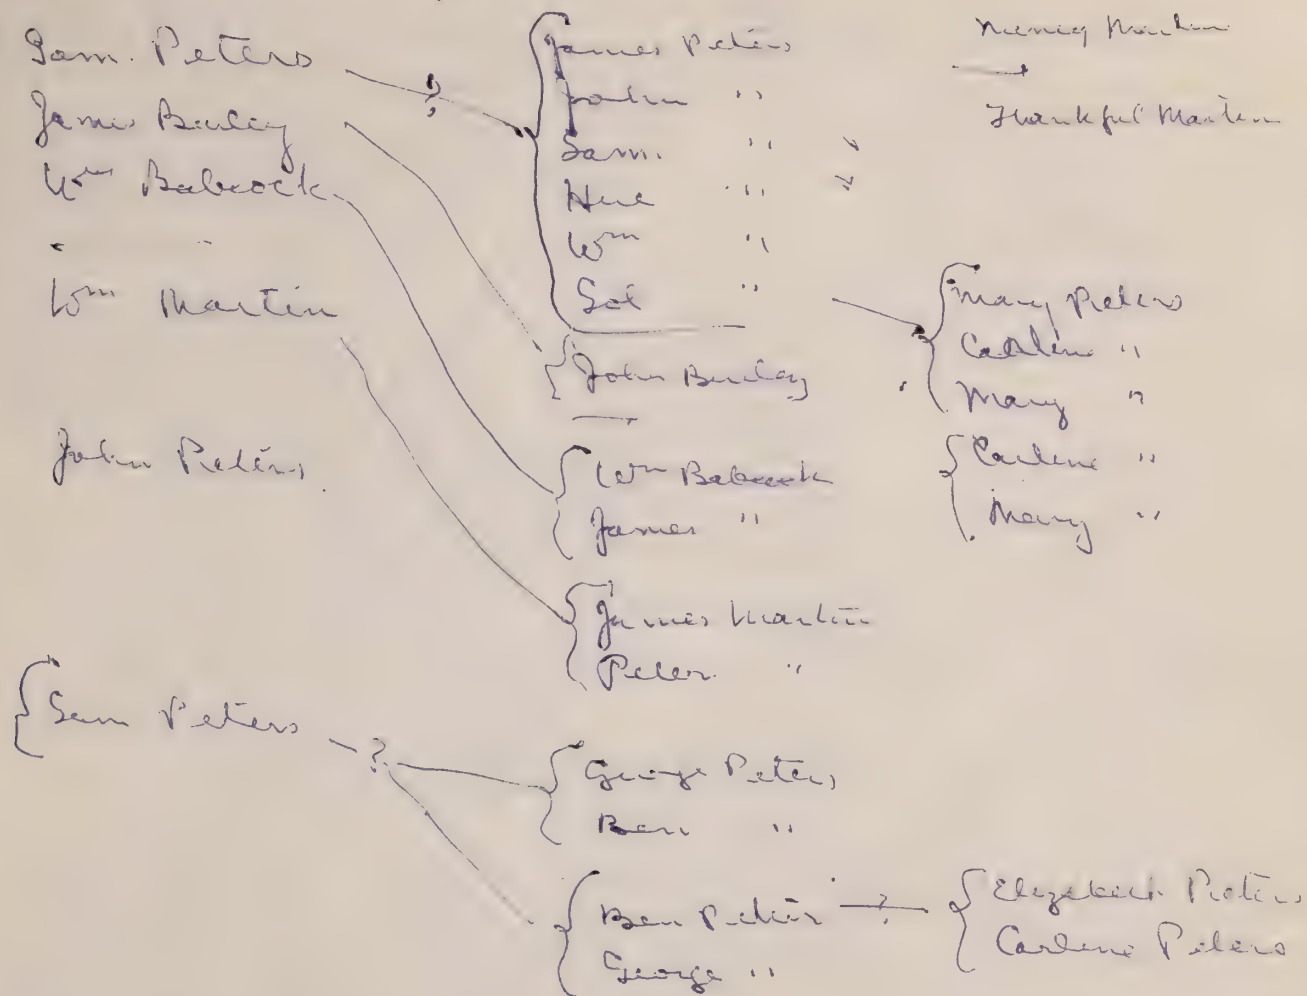 Sam. Peters
James Burley
Wm Babcock
Wm Martin
John Peters
{ Sam Peters - ?
?
{ James Peters
John "
Sam. "
Hue "
Wm "
Sol "
{ John Burley
{ Wm Babcock
James "
{ James Martin
Peter "
{ George Peters
Ben "
{ Ben Peters - ?
George "
Martin
Thankful Martin
{ Mary Peters
Carlene "
Mary "
{ Carlene "
Mary "
{ Elizabeth Peters
Carlene Peters